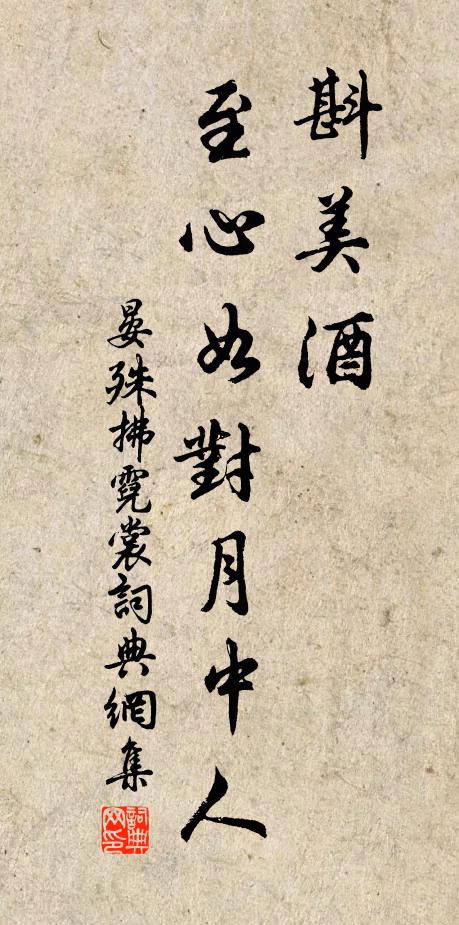 斟美酒
至心如對月中人
晏殊拂霓裳詞典網集
詞典网印